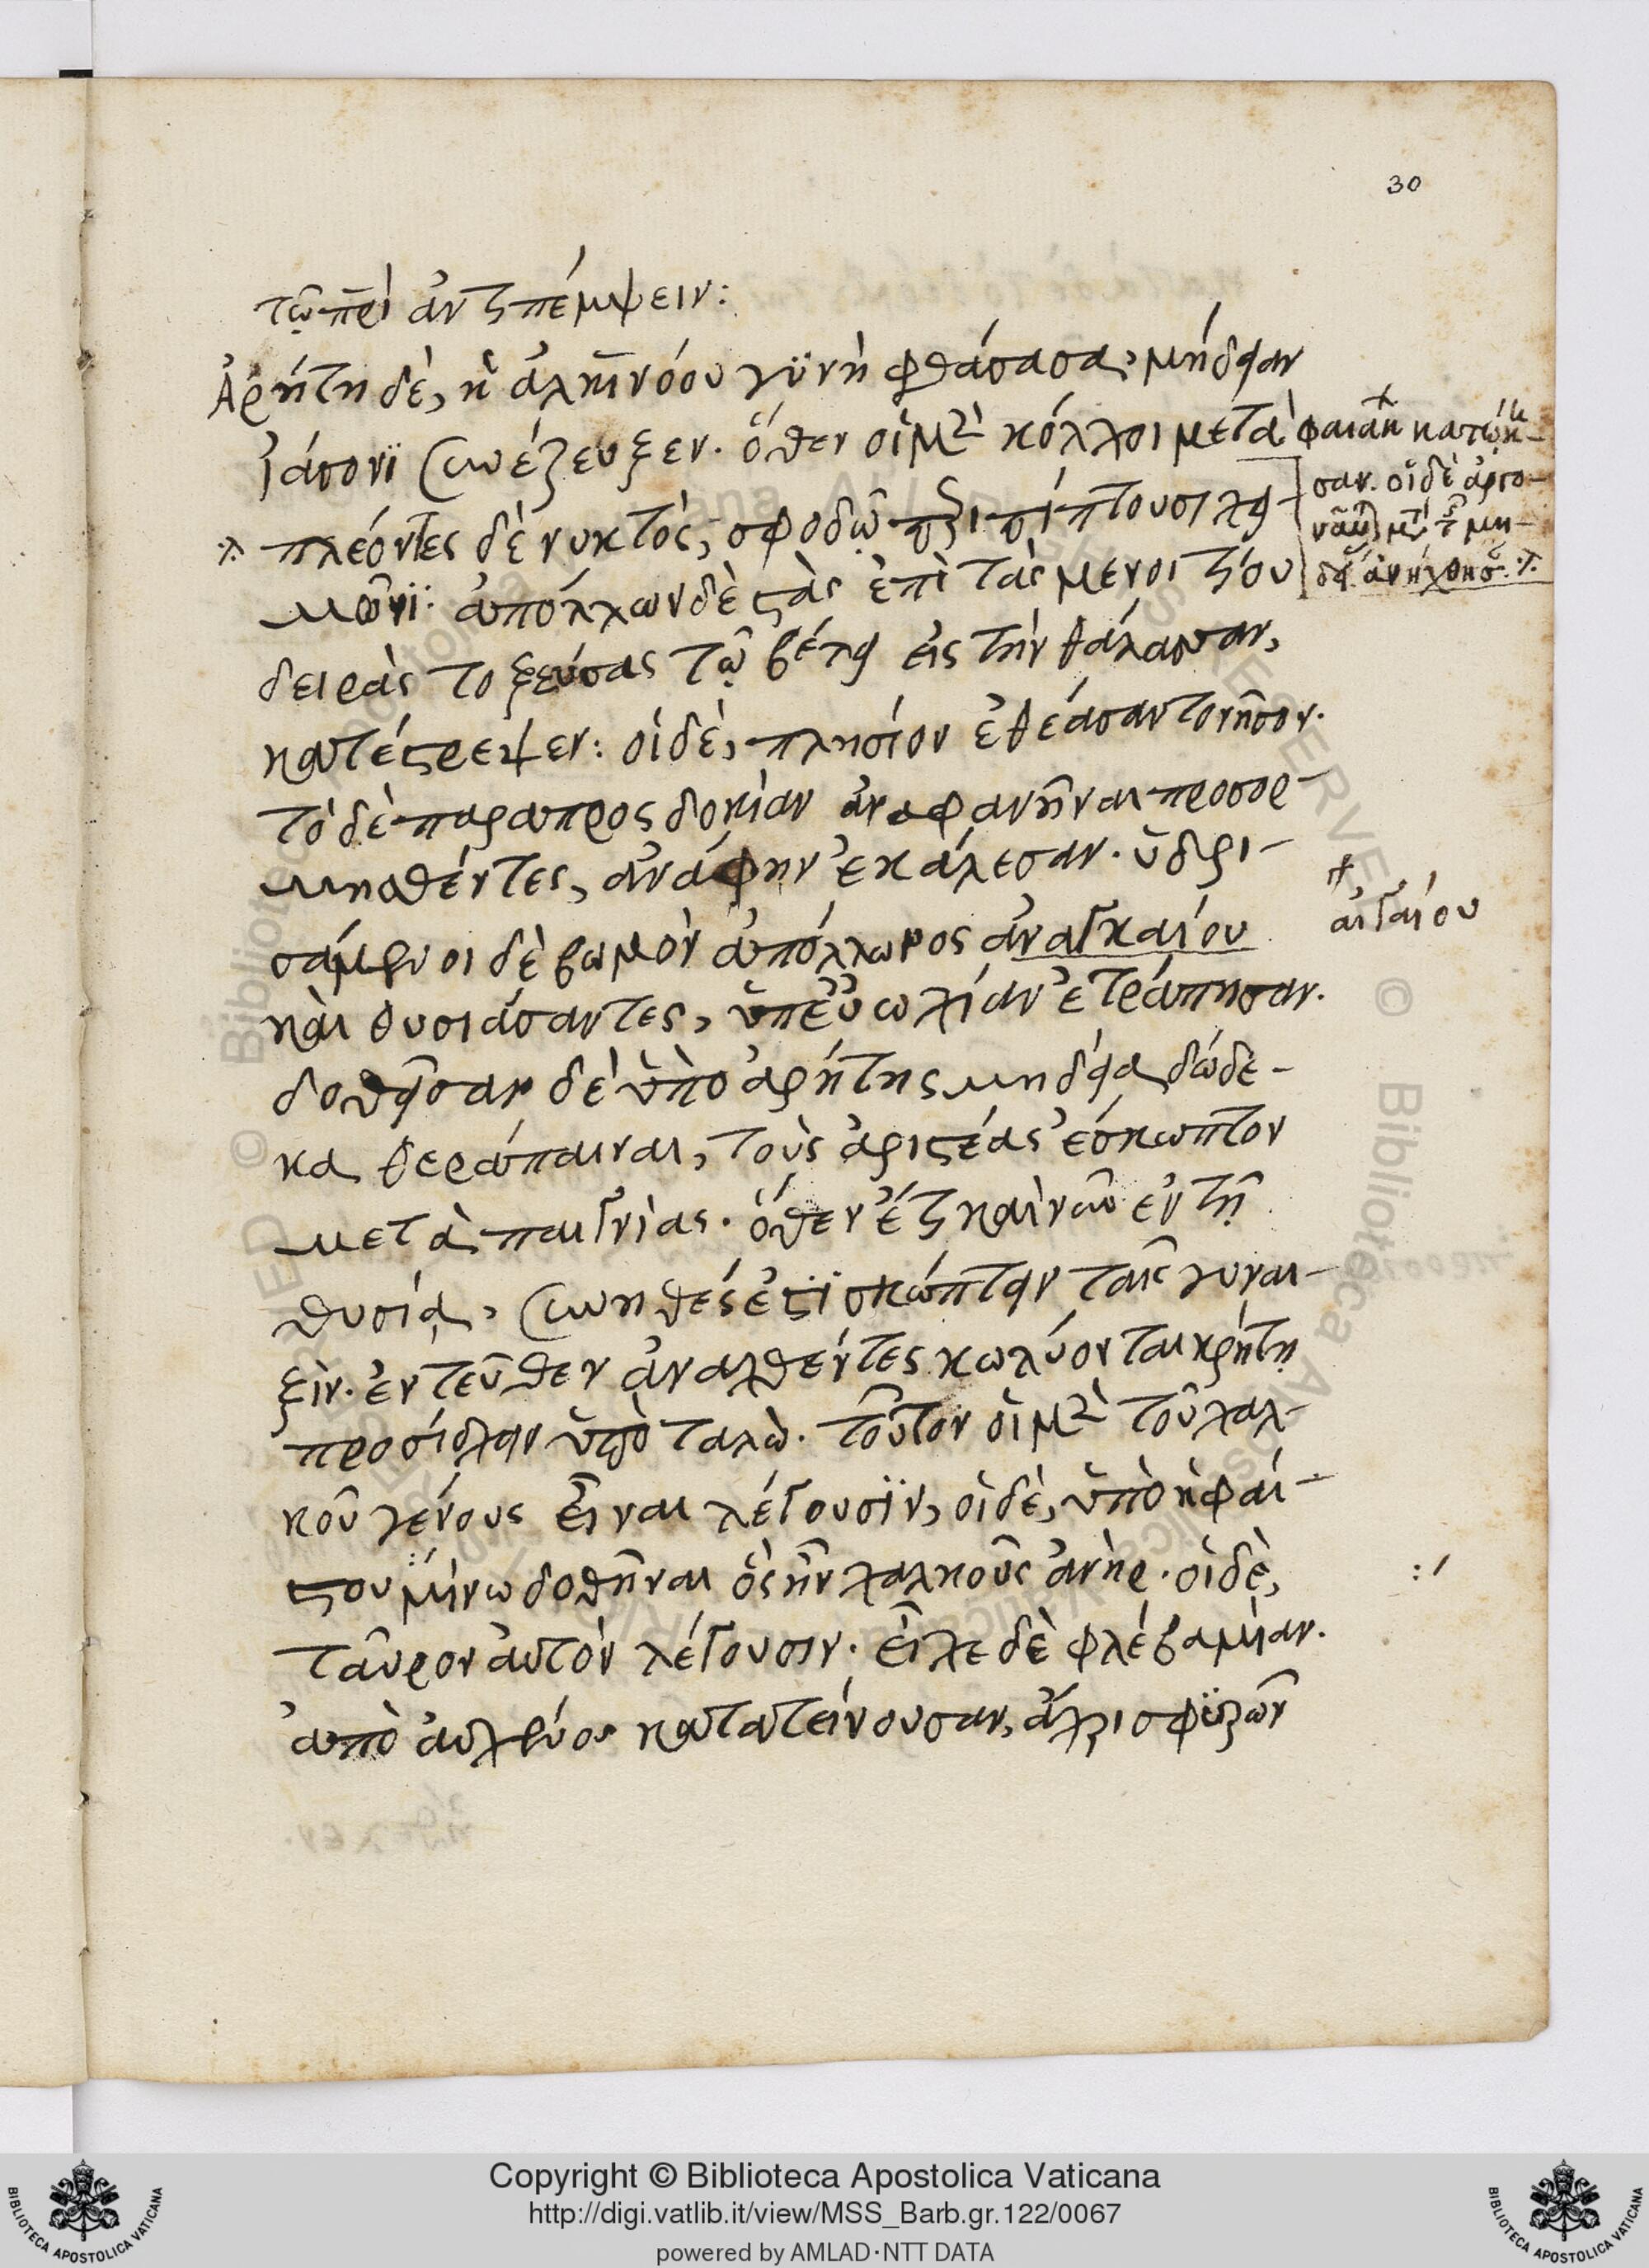 30
τῷ πρὶ ἀντιπέμψειν:
Ἀρήτη δὲ, ἡ ἀλκινόου γϋνὴ φθάσασα, μήδειαν
ἰάσονϊ συνέζευξεν. ὅθεν οἱ μὲν κόλχοι μετὰ φαιάκ κατῴκη-
σαν. οἱ δὲ ἀργο-
ναῦ μετὰ τ μη-
δεί ἀνήχθησ
πλέοντες δὲ νυκτός, σφοδρῷ περιπίπτουσι χει-
μῶνϊ. ἀπόλλων δὲ στὰς ἐπὶ τὰς μενοιτίου
δειρὰς τοξεύσας τῷ βέλει εἰς τὴν θάλασσαν,
κατέστρεψεν: οἱ δὲ, πλησίον ἐθεάσαντο νῆσον.
τὸ δὲ παραπροσδοκίαν ἀναφανῆναι προσορ-
μησθέντες, ἀνάφην ἐκάλεσαν. ἱδρι-
σάμενοι δὲ βωμὸν ἀπόλλωνος ἀναγκαίου
αἰγαίου
καὶ θυσιάσαντες, ἐπ' εὐωχίαν ἐτράπησαν.
δοθεῖσαι δὲ ὑπὸ ἀρήτης μηδείᾳ δώδε-
κα θεράπαιναι, τοὺς ἀριστέας ἔσκωπτον
μετὰ παιγνίας. ὅθεν ἔτι καὶ νῦν ἐν τῇ
θυσίᾳ, συνηθές ἐστϊ σκώπτειν ταῖς γυναι-
ξὶν. ἐντεῦθεν ἀναχθέντες κωλύονται κρήτῃ
προσίσχειν ὑπὸ ταλὼ. τοῦτον οἱ μὲν τοῦ χαλ-
κοῦ γένους εἶναι λέγουσϊν, οἱ δὲ, ὑπὸ ἡφαί-
στου μίνῳ δοθῆναι ὃς ἦν χαλκοῦς ἀνὴρ. οἱ δὲ,
ταῦρον αὐτὸν λέγουσιν. εἶχε δὲ φλέβα μίαν.
ἀπὸ αὐχένος κατατείνουσαν, ἄχρι σφϋρῶν
Copyright © Biblioteca Apostolica Vaticana
http://digi.vatlib.it/view/MSS_Barb.gr.122/0067
powered by AMLAD·NTT DATA
BIBLIOTECA APOSTOLICA VATICANA
BIBLIOTECA APOSTOLICA VATICANA